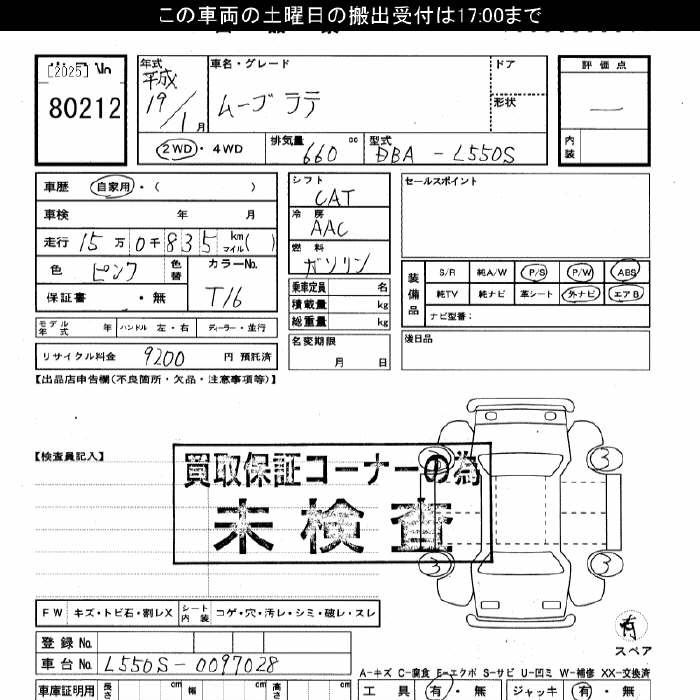 この車両の土曜日の搬出受付は17:00まで
[2025]
80212
年式
平成
19/1月
車名・グレード
ムーヴ ラテ
ドア
形状
評価点
—
内装
2WD・4WD
排気量 660 cc
型式 DBA - L550S
車歴 自家用・( )
車検 年 月
走行 15万0千835 km マイル( )
色 ピンク 色替
カラーNo. T16
保証書 ・無
モデル年式 年 ハンドル 左・右 ディーラー・並行
リサイクル料金 9200 円 預託済
シフト
CAT
冷房
AAC
燃料
ガソリン
乗車定員 名
積載量 kg
総重量 kg
名変期限
月 日
セールスポイント
装備品
S/R 純A/W P/S P/W ABS
純TV 純ナビ 革シート 外ナビ エアB
ナビ型番:
後日品
【出品店申告欄(不良箇所・欠品・注意事項等)】
【検査員記入】
買取保証コーナーの為
未検査
3 3
3 3
FW キズ・トビ石・割レX シート内装 コゲ・穴・汚レ・シミ・破レ・スレ
有
スペア
登録No.
車台No. L550S-0097028
A-キズ C-腐食 E-エクボ S-サビ U-凹ミ W-補修 XX-交換済
車庫証明用 長さ cm 幅 cm 高さ cm
工具 有・無 ジャッキ 有・無